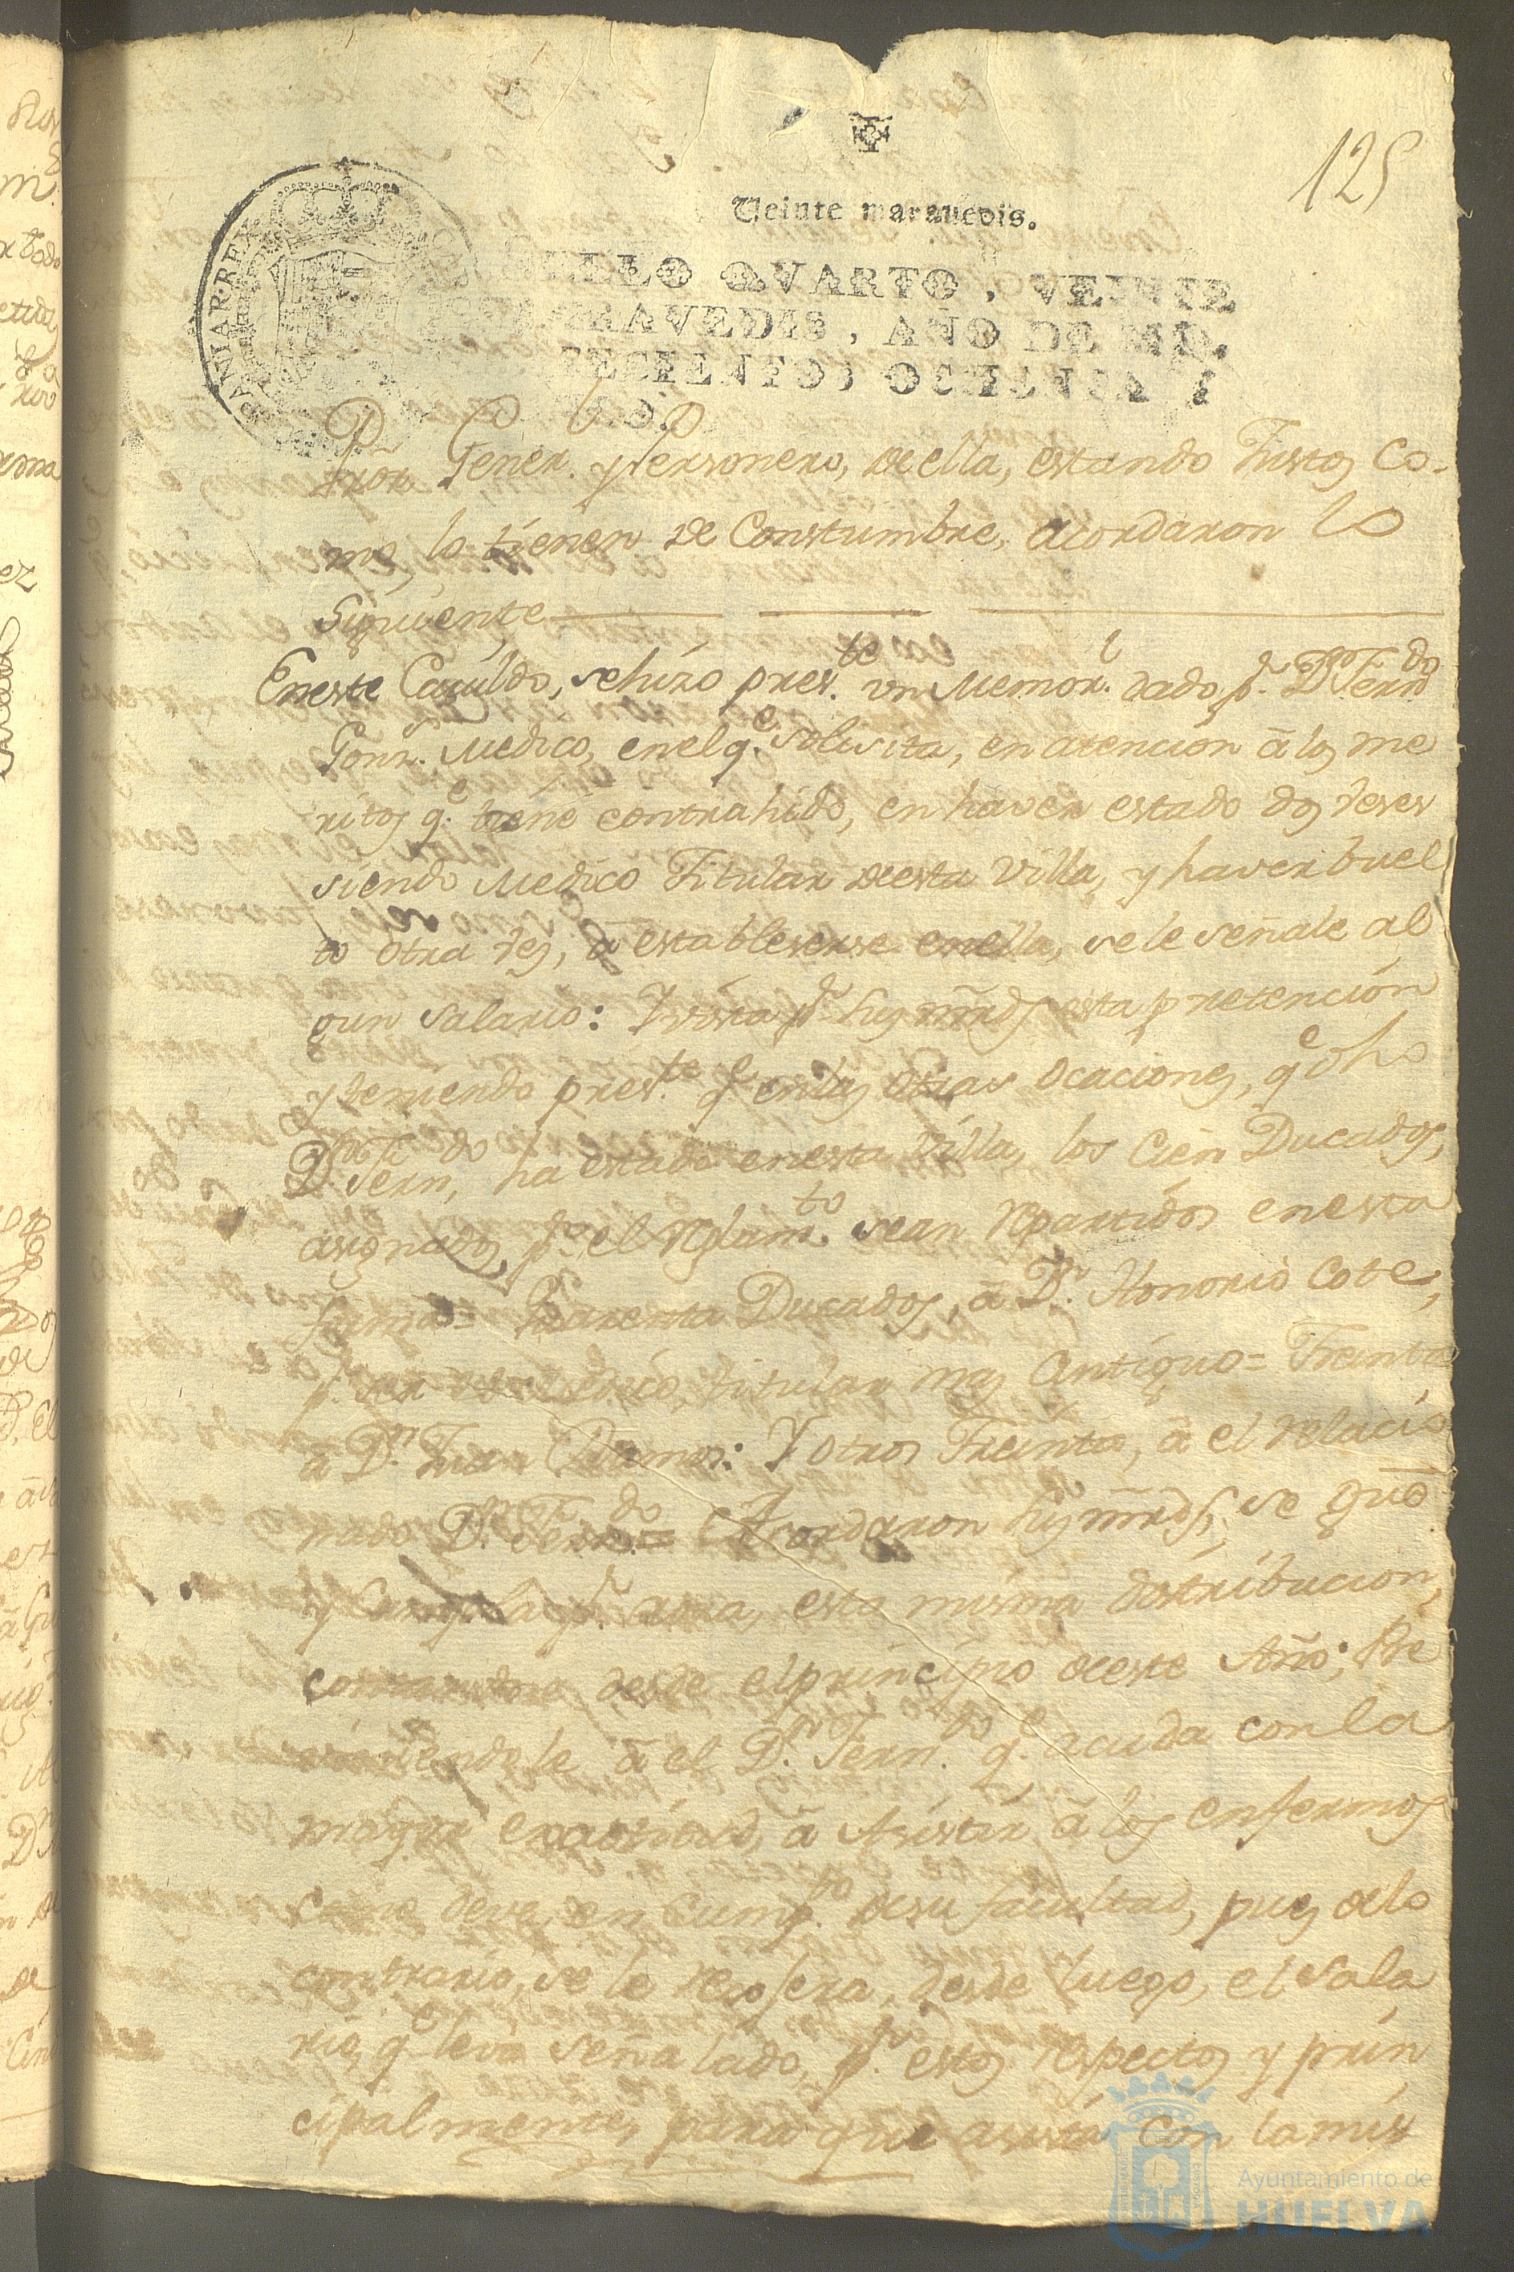 125
Veinte maravedis.
SELLO QVARTO, VEINTE
MARAVEDIS, AÑO DE MIL
SETECIENTOS OCHENTA Y
HISPANIAR·REX
Grãl Pror. y Personero, de ella, estando Justos Co-
mo lo tienen de Constumbre, acordaron lo
Siguiente
En este Cauildo, se hizo pres.te vn Memor.l dado p.r Dn Fern.do
Gonz. Medico, en el q.e solisita, en atencion â los me
ritos q.e tiene contrahido, en haver estado dos veses
siendo Medico Titular de esta Villa, y haver buel
to otra vez, â estableserse en ella, se le señale al
gun salario: Y vista p.r sus mrds esta pretencion
y teniendo pres.te q.e en las otras ocaciones, q.e dho
D.n Fern.do, ha estado en esta Villa, los Cien Ducados,
asignados, p.r el Reglam.to sean repartidos en esta
forma= Quarenta Ducados, â D.n Honorio Cote,
p.r ser el Medico, titular mas Antiguo= Treinta
â D.n Juan Ramos: Y otros Treinta, â el relacio
nado D.n Fern.do= Acordaron sus mrds, se gue
y Cumpla p.r aora, esta misma distribucion,
contandose desde el principio de este Año; Pre
viniendole â el D.n Fern.do q.e acuda con la
mayor exactitud, â Asistir â los enfermos
como deve, en cump.to de su facultad, pues de lo
contrario, se le recojera, desde luego, el sala
rio, q.e le va señalado, p.r estos respectos y prin
cipalmente, para que asista Con la mis
Ayuntamiento de
HUELVA